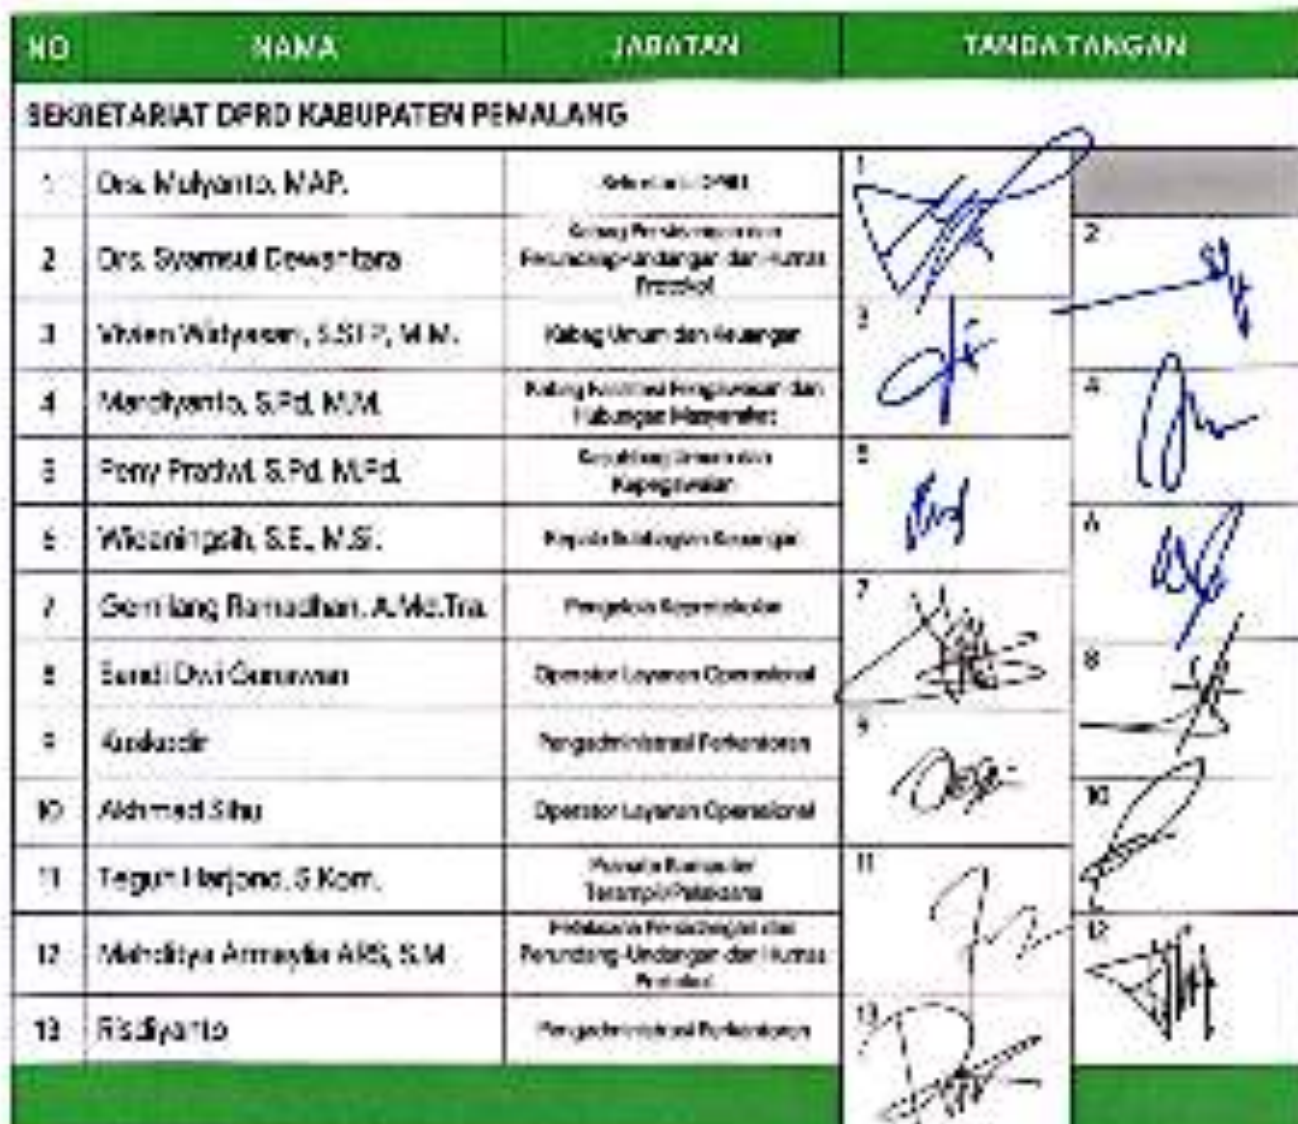 NO NAMA JABATAN TANDA TANGAN
SEKRETARIAT DPRD KABUPATEN PEMALANG
1 Drs. Mulyanto, MAP. Sekretaris DPRD 1
2 Drs. Syamsul Dewantara Kabag Persidangan dan
Perundang-undangan dan Humas
Protokol 2
3 Vivien Widyasari, S.STP, M.M. Kabag Umum dan Keuangan 3
4 Mardiyanto, S.Pd, M.M. Kabag Fasilitasi Pengawasan dan
Hubungan Masyarakat 4
5 Peny Pratiwi, S.Pd, M.Pd. Kasubbag Umum dan
Kepegawaian 5
6 S.E., M.Si. Kepala Subbagian Keuangan 6
7 Gemilang Ramadhan, A.Md.Tra. Pengelola Keprotokolan 7
8 Dwi Operator Layanan Operasional 8
9 Pengadministrasi Perkantoran 9
10 Akhmad Operator Layanan Operasional 10
11 Teguh Harjono, S.Kom. Pranata Komputer
Terampil/Pelaksana 11
12 Mahditya ARS, S.M. Persidangan dan
Perundang-Undangan dan Humas
Protokol 12
13 Risdiyanto Pengadministrasi Perkantoran 13